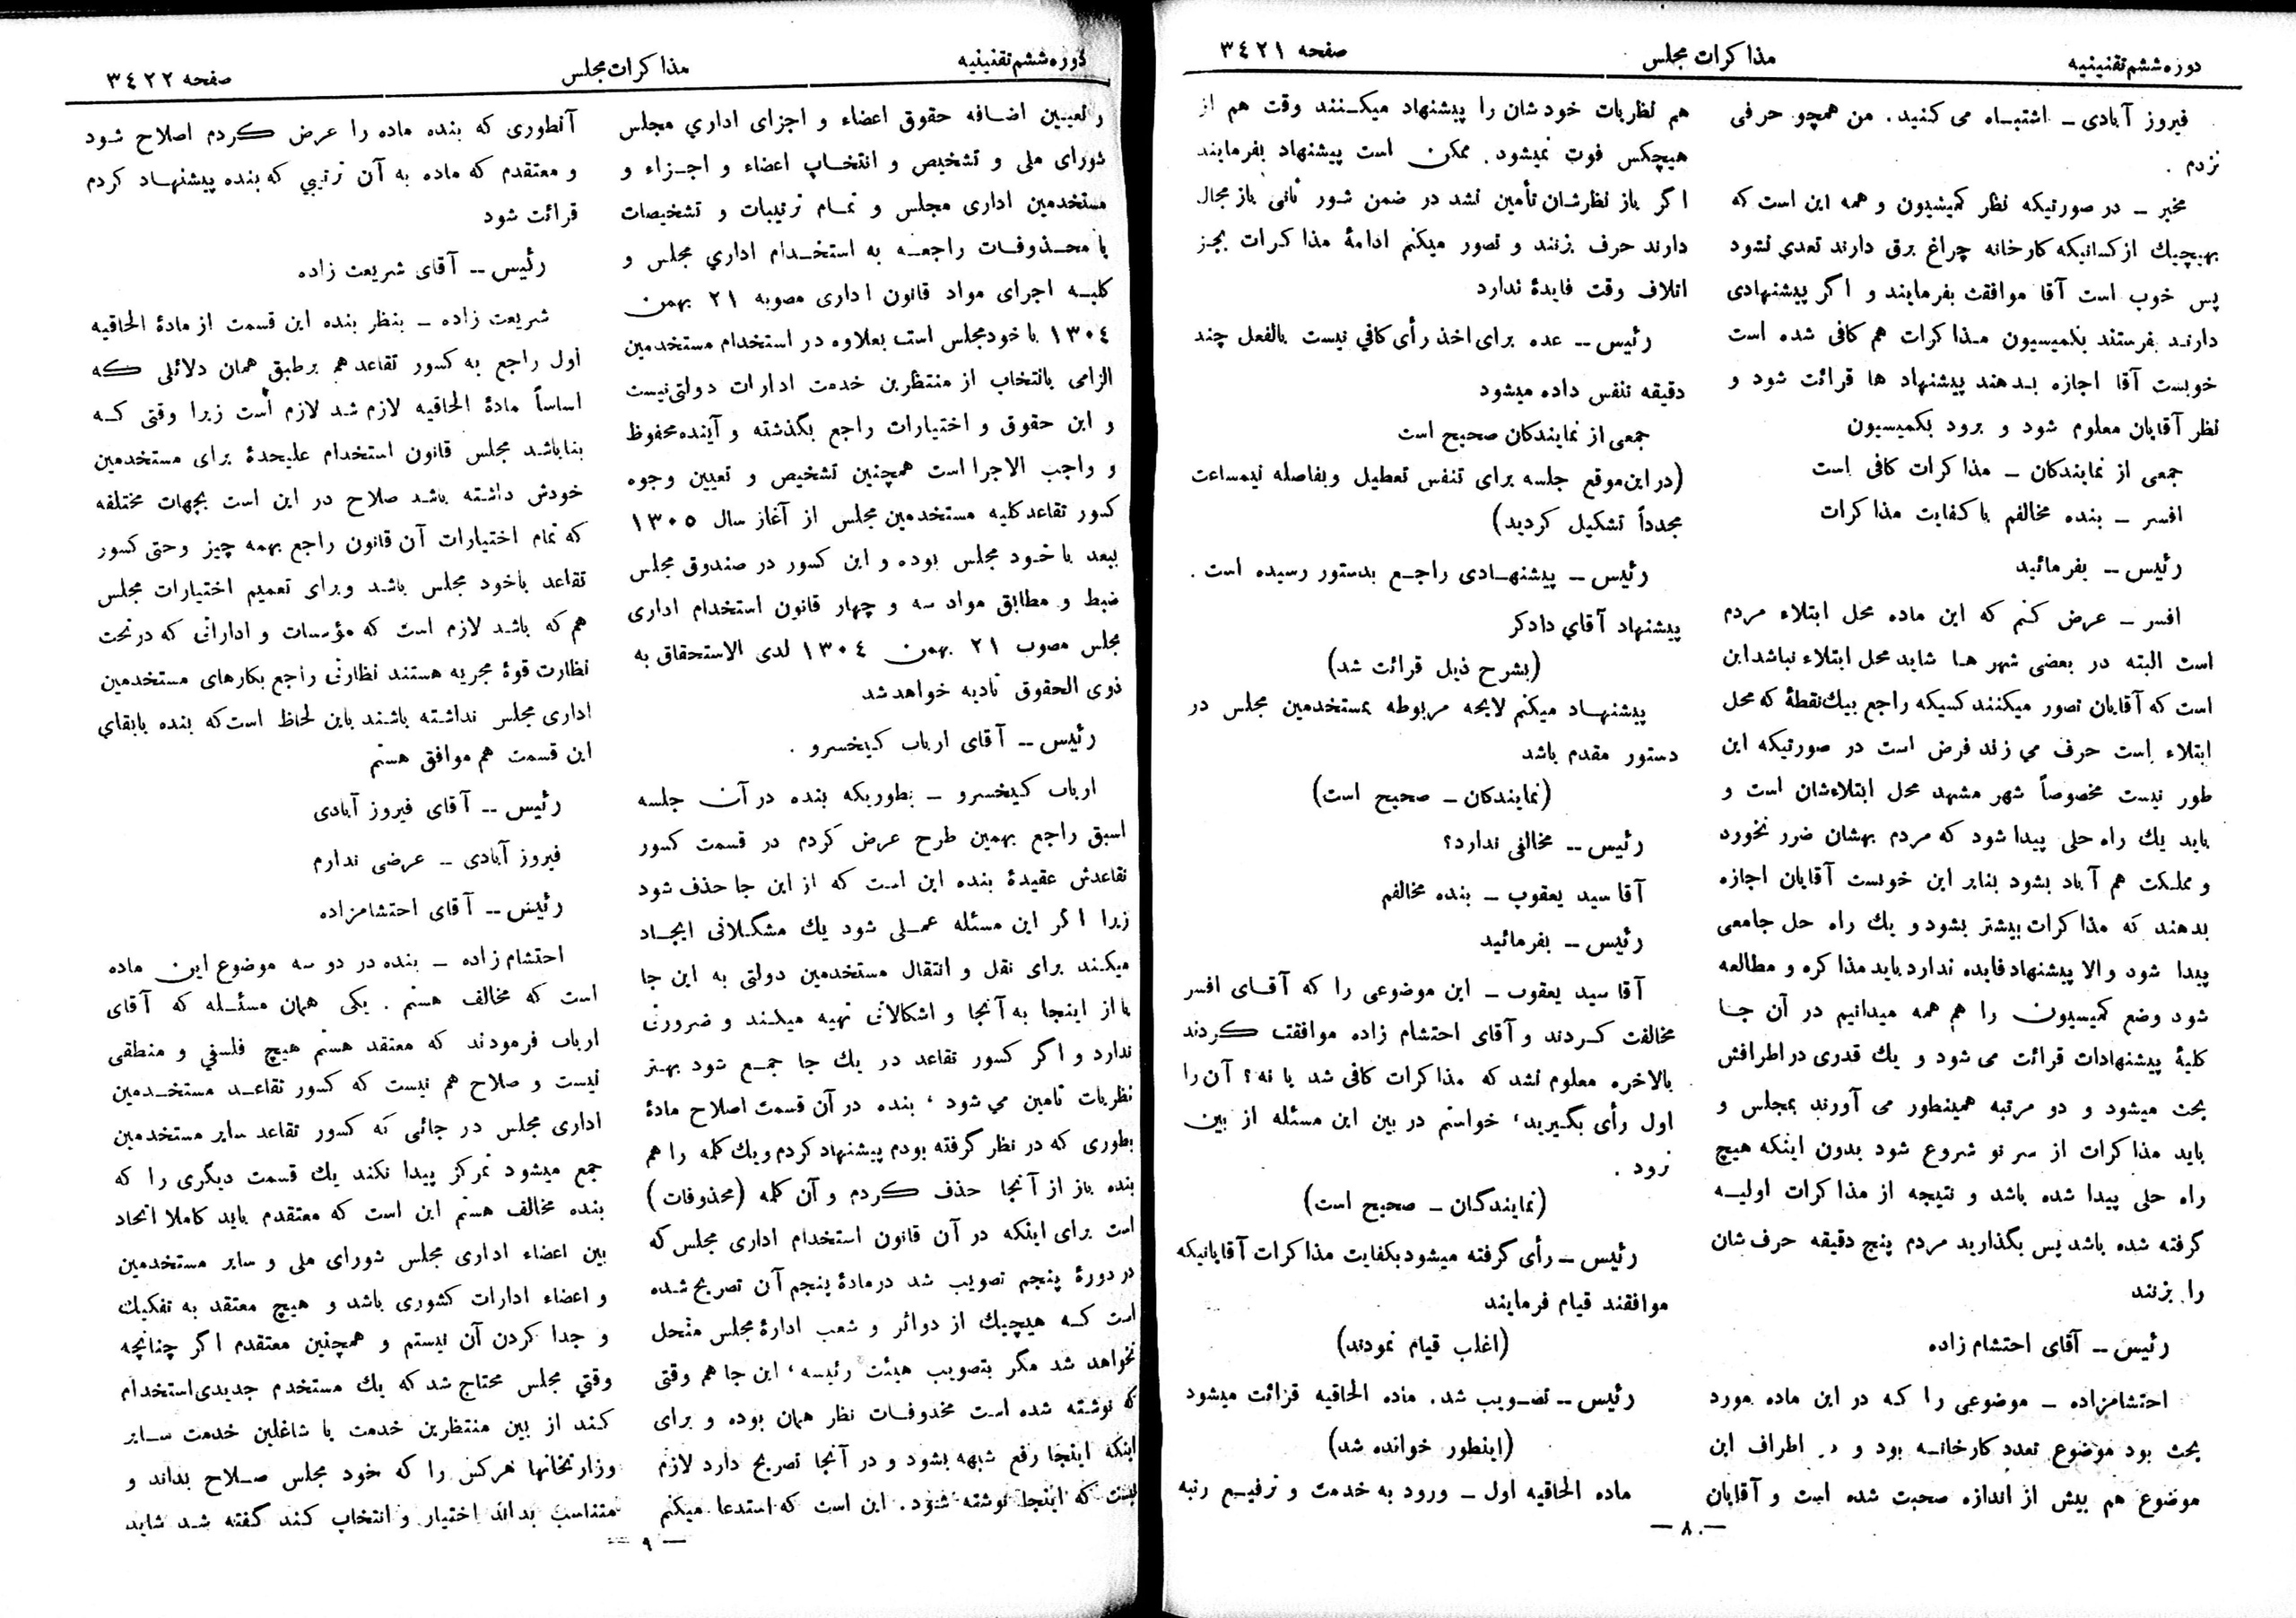 دوره ششم تقنینیه
مذاکرات مجلس
صفحه ۳٤۲۱
فیروز آبادی ــ اشتباه می کنید . من همچو حرفی
نزدم .
مخبر ــ در صورتیکه نظر کمیسیون و همه این است که
بهیچیك از کسانیکه کارخانه چراغ برق دارند تعدی نشود
پس خوب است آقا موافقت بفرمایند و اگر پیشنهادی
دارند بفرستند بکمیسیون مذاکرات هم کافی شده است
خوبست آقا اجازه بدهند پیشنهاد ها قرائت شود و
نظر آقایان معلوم شود و برود بکمیسیون
جمعی از نمایندکان ــ مذاکرات کافی است
افسر ــ بنده مخالفم با کفایت مذاکرات
رئیس ــ بفرمائید
افسر ــ عرض کنم که این ماده محل ابتلاء مردم
است البته در بعضی شهر ها شاید محل ابتلاء نباشد این
است که آقایان تصور میکنند کسیکه راجع بیك نقطهٔ که محل
ابتلاء است حرف می زند فرض است در صورتیکه این
طور نیست مخصوصاً شهر مشهد محل ابتلاءشان است و
باید یك راه حلی پیدا شود که مردم بهشان ضرر نخورد
و مملکت هم آباد بشود بنابر این خوبست آقایان اجازه
بدهند که مذاکرات بیشتر بشود و یك راه حل جامعی
پیدا شود والا پیشنهاد فایده ندارد باید مذاکره و مطالعه
شود وضع کمیسیون را هم همه میدانیم در آن جا
کلیهٔ پیشنهادات قرائت می شود و یك قدری در اطرافش
بحث میشود و دو مرتبه همینطور می آورند بمجلس و
باید مذاکرات از سر نو شروع شود بدون اینکه هیچ
راه حلی پیدا شده باشد و نتیجه از مذاکرات اولیه
گرفته شده باشد پس بگذارید مردم پنج دقیقه حرف شان
را بزنند
رئیس ــ آقای احتشام زاده
احتشامزاده ــ موضوعی را که در این ماده مورد
بحث بود موضوع تعدد کارخانه بود و در اطراف این
موضوع هم بیش از اندازه صحبت شده است و آقایان
هم نظریات خودشان را پیشنهاد میکنند وقت هم از
هیچکس فوت نمیشود . ممکن است پیشنهاد بفرمایند
اگر باز نظرشان تأمین نشد در ضمن شور ثانی باز مجال
دارند حرف بزنند و تصور میکنم ادامهٔ مذاکرات بجز
اتلاف وقت فایدهٔ ندارد
رئیس ــ عده برای اخذ رأی کافی نیست بالفعل چند
دقیقه تنفس داده میشود
جمعی از نمایندکان صحیح است
(در این موقع جلسه برای تنفس تعطیل و بفاصله نیمساعت
مجدداً تشکیل کردید)
رئیس ــ پیشنهادی راجع بدستور رسیده است .
پیشنهاد آقای دادکر
(بشرح ذیل قرائت شد)
پیشنهاد میکنم لایحه مربوطه بمستخدمین مجلس در
دستور مقدم باشد
(نمایندکان ــ صحیح است)
رئیس ــ مخالفی ندارد؟
آقا سید یعقوب ــ بنده مخالفم
رئیس ــ بفرمائید
آقا سید یعقوب ــ این موضوعی را که آقای افسر
مخالفت کردند و آقای احتشام زاده موافقت کردند
بالاخره معلوم نشد که مذاکرات کافی شد یا نه؟ آن را
اول رأی بگیرید، خواستم در بین این مسئله از بین
نرود .
(نمایندگان ــ صحیح است)
رئیس ــ رأی گرفته میشود بکفایت مذاکرات آقایانیکه
موافقند قیام فرمایند
(اغلب قیام نمودند)
رئیس ــ تصویب شد . ماده الحاقیه قرائت میشود
(اینطور خوانده شد)
ماده الحاقیه اول ــ ورود به خدمت و ترفیع رتبه
— ۸ —
دوره ششم تقنینیه
مذاکرات مجلس
صفحه ۳٤۲۲
و تعیین اضافه حقوق اعضاء و اجزای اداری مجلس
شورای ملی و تشخیص و انتخاب اعضاء و اجزاء و
مستخدمین اداری مجلس و تمام ترتیبات و تشخیصات
یا محذوفات راجعه به استخدام اداری مجلس و
کلیه اجرای مواد قانون اداری مصوبه ۲۱ بهمن
۱۳۰٤ با خود مجلس است بعلاوه در استخدام مستخدمین
الزامی بانتخاب از منتظرین خدمت ادارات دولتی نیست
و این حقوق و اختیارات راجع بگذشته و آینده محفوظ
و واجب الاجرا است همچنین تشخیص و تعیین وجوه
کسور تقاعد کلیه مستخدمین مجلس از آغاز سال ۱۳۰٥
ببعد با خود مجلس بوده و این کسور در صندوق مجلس
ضبط و مطابق مواد سه و چهار قانون استخدام اداری
مجلس مصوب ۲۱ بهمن ۱۳۰٤ لدی الاستحقاق به
ذوی الحقوق تادیه خواهد شد
رئیس ــ آقای ارباب کیخسرو .
ارباب کیخسرو ــ بطوریکه بنده در آن جلسه
اسبق راجع بهمین طرح عرض کردم در قسمت کسور
تقاعدش عقیدهٔ بنده این است که از این جا حذف شود
زیرا اگر این مسئله عملی شود یك مشکلاتی ایجاد
میکند برای نقل و انتقال مستخدمین دولتی به این جا
یا از اینجا به آنجا و اشکالاتی تهیه میکند و ضرورتی
ندارد و اگر کسور تقاعد در یك جا جمع شود بهتر
نظریات تامین می شود ، بنده در آن قسمت اصلاح مادهٔ
بطوری که در نظر گرفته بودم پیشنهاد کردم و یك کلمه را هم
بنده باز از آنجا حذف کردم و آن کلمه (محذوفات)
است برای اینکه در آن قانون استخدام اداری مجلس که
در دورهٔ پنجم تصویب شد در مادهٔ پنجم آن تصریح شده
است که هیچیك از دوائر و شعب ادارهٔ مجلس منحل
نخواهد شد مگر بتصویب هیئت رئیسه ، این جا هم وقتی
که نوشته شده است محذوفات نظر همان بوده و برای
اینکه اینجا رفع شبهه بشود و در آنجا تصریح دارد لازم
نیست که اینجا نوشته شود . این است که استدعا میکنم
آنطوری که بنده ماده را عرض کردم اصلاح شود
و معتقدم که ماده به آن ترتیبی که بنده پیشنهاد کردم
قرائت شود
رئیس ــ آقای شریعت زاده
شریعت زاده ــ بنظر بنده این قسمت از مادهٔ الحاقیه
اول راجع به کسور تقاعد هم برطبق همان دلائلی که
اساساً مادهٔ الحاقیه لازم شد لازم است زیرا وقتی که
بنا باشد مجلس قانون استخدام علیحدهٔ برای مستخدمین
خودش داشته باشد صلاح در این است بجهات مختلفه
که تمام اختیارات آن قانون راجع بهمه چیز وحتی کسور
تقاعد باخود مجلس باشد وبرای تعمیم اختیارات مجلس
هم که باشد لازم است که مؤسسات و اداراتی که در تحت
نظارت قوهٔ مجریه هستند نظارتی راجع بکارهای مستخدمین
اداری مجلس نداشته باشند باین لحاظ است که بنده بابقای
این قسمت هم موافق هستم
رئیس ــ آقای فیروز آبادی
فیروز آبادی ــ عرضی ندارم
رئیس ــ آقای احتشامزاده
احتشام زاده ــ بنده در دو سه موضوع این ماده
است که مخالف هستم . یکی همان مسئله که آقای
ارباب فرمودند که معتقد هستم هیچ فلسفی و منطقی
نیست و صلاح هم نیست که کسور تقاعد مستخدمین
اداری مجلس در جائی که کسور تقاعد سایر مستخدمین
جمع میشود تمرکز پیدا نکند یك قسمت دیگری را که
بنده مخالف هستم این است که معتقدم باید کاملا اتحاد
بین اعضاء اداری مجلس شورای ملی و سایر مستخدمین
و اعضاء ادارات کشوری باشد و هیچ معتقد به تفکیك
و جدا کردن آن نیستم و همچنین معتقدم اگر چنانچه
وقتی مجلس محتاج شد که یك مستخدم جدیدی استخدام
کند از بین منتظرین خدمت یا شاغلین خدمت سایر
وزارتخانها هرکس را که خود مجلس صلاح بداند و
متناسب بداند اختیار و انتخاب کند گفته شد شاید
— ۹ —